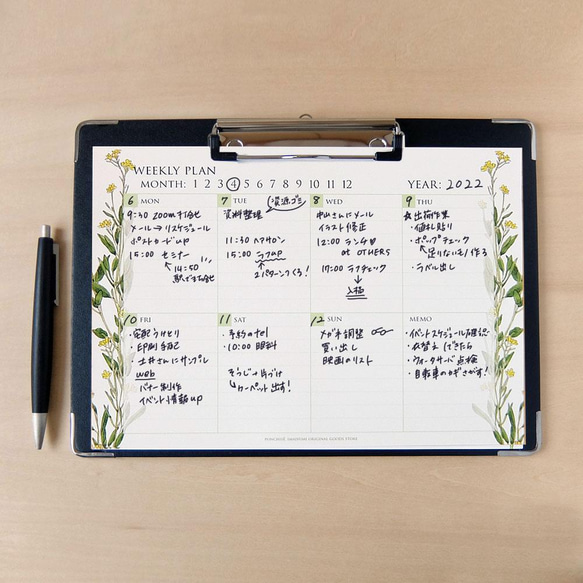 WEEKLY PLAN
MONTH: 1 2 3 4 5 6 7 8 9 10 11 12
YEAR: 2022
6 MON
9:30 zoom打合せ
メール→リスケジュール
ポストカードup
15:00 セミナー
14:50
駅で待合せ
7 TUE
資源ゴミ
資料整理
11:30 ヘアサロン
15:00 ラフup
2パターンつくる!
8 WED
中山さんにメール
イラスト修正
12:00 ランチ
at OTHERS
17:00 ラフチェック
↓
入稿
9 THU
出荷作業
・値札貼り
・ポップチェック
足りないモノ作る
・ラベル出し
10 FRI
・宅配うけとり
・印刷手配
・土井さんにサンプル
web
バナー制作
イベント情報up
11 SAT
・予約のtel
・10:00 眼科
そうじ→片づけ
カーペット出す!
12 SUN
メガネ調整
買い出し
映画のリスト
MEMO
・イベントスケジュール確認
・衣替え できたら
・ウォーターサーバー点検
・自転車のカギさがす!